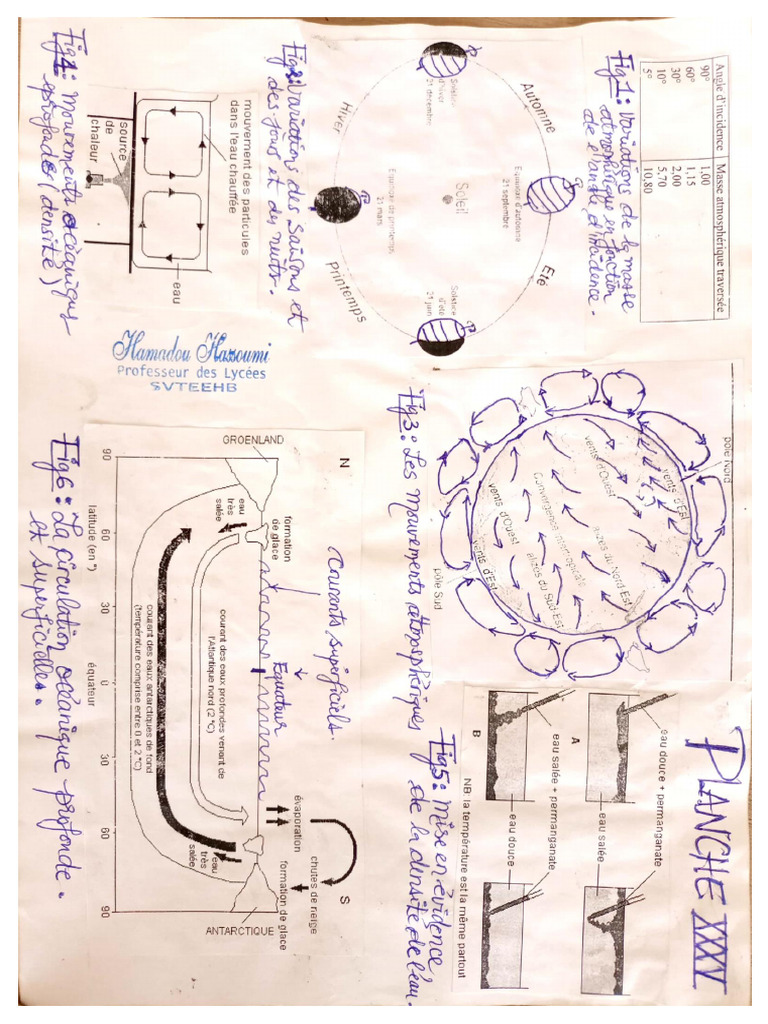 PLANCHE XXXV
Angle d'incidence
Masse atmosphérique traversée
90°
1,00
60°
1,15
30°
2,00
10°
5,70
5°
10,80
Fig1: Variations de la masse
atmosphérique en fonction
de l'angle d'incidence.
Automne
Eté
Hiver
Printemps
Solstice
d'hiver
21 décembre
Equinoxe d'automne
21 septembre
Soleil
Equinoxe de printemps
21 mars
Solstice
d'été
21 juin
Fig2: Variations des saisons et
des jours et des nuits.
mouvement des particules
dans l'eau chauffée
eau
source
de
chaleur
Fig4: Mouvements océaniques
profonds (densité)
Hamadou Hassoumi
Professeur des Lycées
SVTEEHB
pôle Nord
vents d'Est
vents d'Ouest
alizés du Nord Est
Convergence intertropicale
alizés du Sud Est
vents d'Ouest
vents d'Est
pôle Sud
Fig3: Les mouvements atmosphériques
eau douce + permanganate
A
eau salée
eau salée + permanganate
B
eau douce
NB: la température est la même partout
Fig5: Mise en évidence
de la densité de l'eau.
Courants superficiels.
N
S
GROENLAND
formation
de glace
eau
très
salée
Equateur
évaporation
chutes de neige
formation de glace
eau
très
salée
ANTARCTIQUE
courant des eaux profondes venant de
l'Atlantique nord (2 °C)
courant des eaux antarctiques de fond
(température comprise entre 0 et 2 °C)
90 60 30 0 30 60 90
latitude (en °)
équateur
Fig6: La circulation océanique profonde
et superficielle.